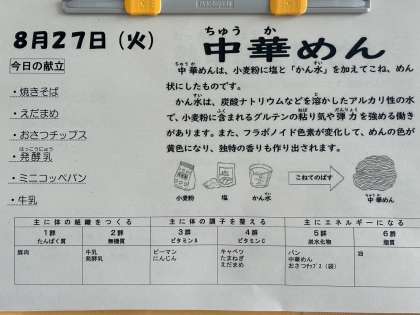 8月27日（火）
今日の献立
・焼きそば
・えだまめ
・おさつチップス
はっこうにゅう
・発酵乳
・ミニコッペパン
・牛乳
ちゅう か
中華めん
ちゅうか
中華めんは、小麦粉に塩と「かん水」を加えてこね、めん
状にしたものです。
かん水は、炭酸ナトリウムなどを溶かしたアルカリ性の水
で、小麦粉に含まれるグルテンの粘り気や弾力を強める働き
があります。また、フラボノイド色素が変化して、めんの色が
黄色になり、独特の香りも作り出されます。
小麦粉
塩
かん水
こねてのばす
中華めん
主に体の組織をつくる
主に体の調子を整える
主にエネルギーになる
1群
たんぱく質
2群
無機質
3群
ビタミンA
4群
ビタミンC
5群
炭水化物
6群
脂質
豚肉
牛乳
発酵乳
ピーマン
にんじん
キャベツ
たまねぎ
えだまめ
パン
中華めん
おさつﾁｯﾌﾟｽ（袋）
油